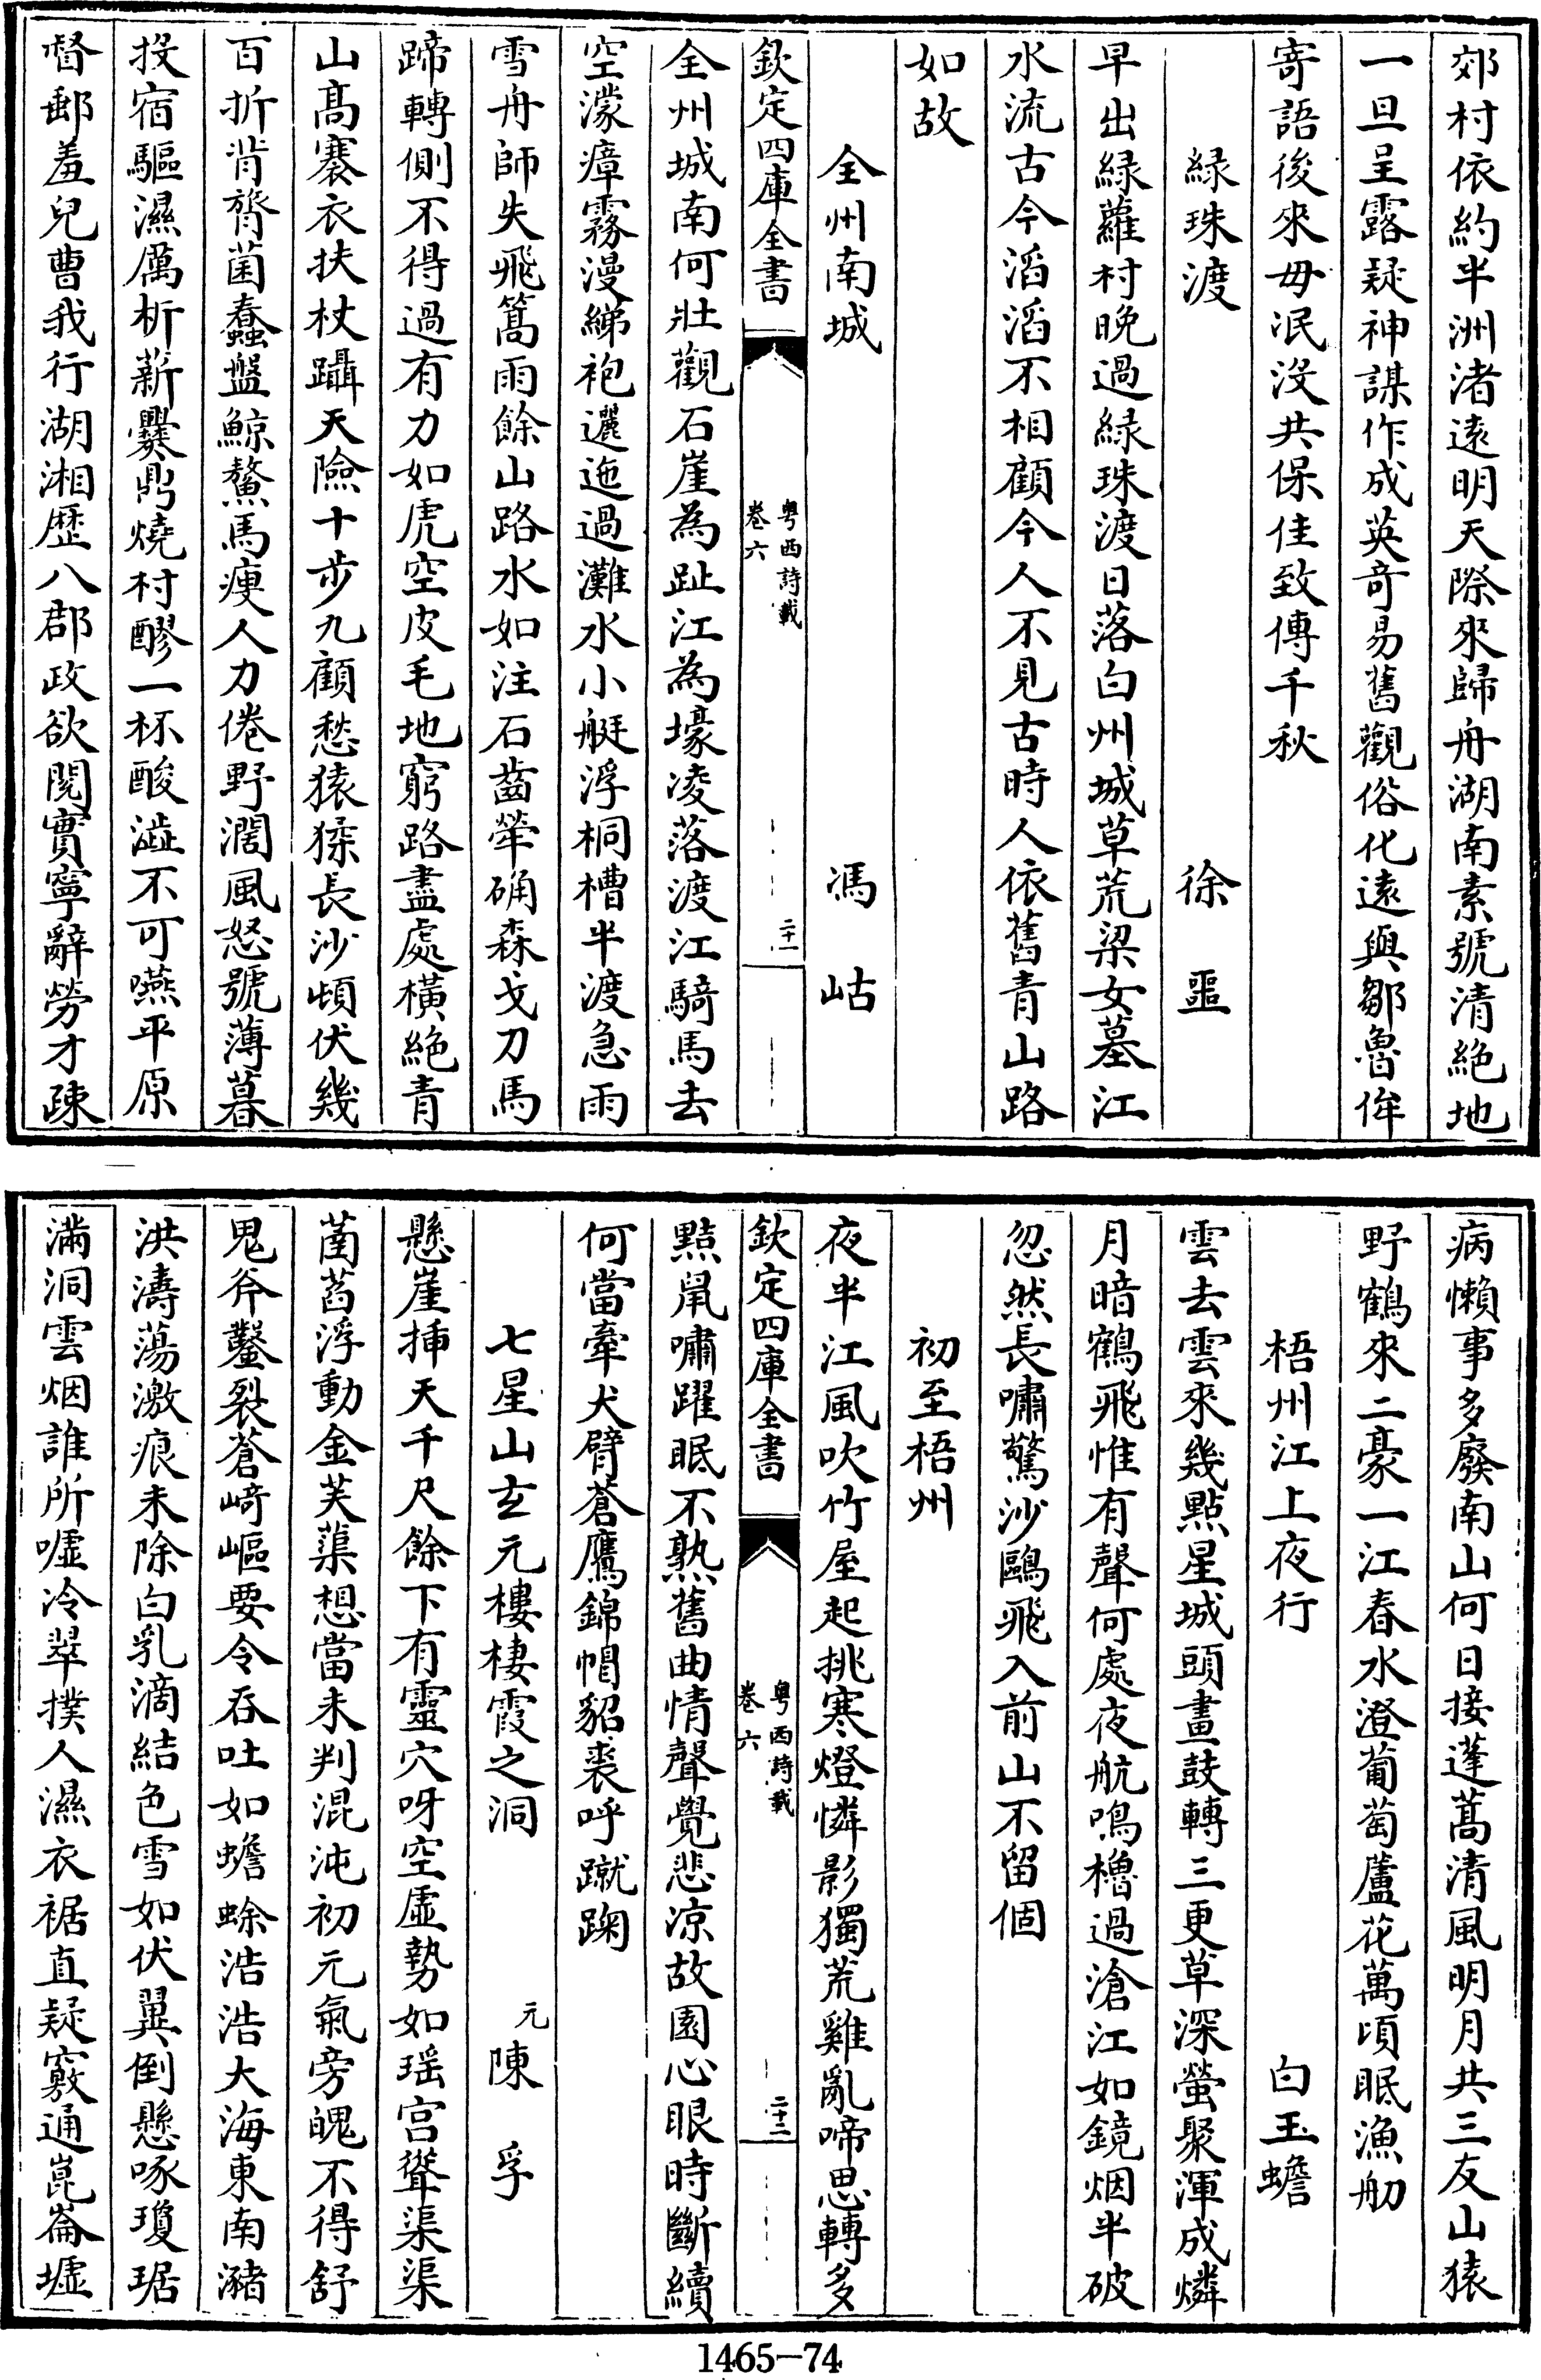 郊村依約半洲渚遠明天際來歸舟湖南素號清絶地
一旦呈露疑神謀作成英竒易舊觀俗化遠與鄒魯侔
寄語後來毋泯沒共保佳致傳千秋
緑珠渡　徐噩
早出緑蘿村晚過緑珠渡日落白州城草荒梁女墓江
水流古今滔滔不相顧今人不見古時人依舊青山路
如故
全州南城　馮岵
欽定四庫全書　粤西詩載　卷六　二十一
全州城南何壯觀石崖為趾江為壕凌落渡江騎馬去
空濛瘴霧漫綈袍邐迤過灘水小艇浮桐槽半渡急雨
雪舟師失飛篙雨餘山路水如注石齒犖确森戈刀馬
蹄轉側不得過有力如虎空皮毛地窮路盡處橫絶青
山髙褰衣扶杖躡天險十步九顧愁猿猱長沙頓伏幾
百折肯膂菌蠢盤鯨鰲馬瘦人力倦野濶風怒號薄暮
投宿驅濕厲析薪爨鼎燒村醪一杯酸澁不可嚥平原
督郵羞兒曹我行湖湘歷八郡政欲閱實寧辭勞才疎
病懶事多廢南山何日接蓬蒿清風明月共三友山猿
野鶴來二豪一江春水澄葡萄蘆花萬頃眠漁舠
梧州江上夜行　白玉蟾
雲去雲來幾點星城頭畫鼓轉三更草深螢聚渾成燐
月暗鶴飛惟有聲何處夜航鳴櫓過滄江如鏡烟半破
忽然長嘯驚沙鷗飛入前山不留個
初至梧州
夜半江風吹竹屋起挑寒燈憐影獨荒雞亂啼思轉多
欽定四庫全書　粤西詩載　卷六　二十二
黠鼠嘯躍眠不熟舊曲情聲覺悲凉故園心眼時斷續
何當牽犬臂蒼鷹錦帽貂裘呼蹴踘
七星山玄元樓棲霞之洞　元陳孚
懸崖揷天千尺餘下有靈穴呀空虛勢如瑶宫聳渠渠
菡萏浮動金芙蕖想當未判混沌初元氣旁魄不得舒
鬼斧鑿裂蒼﨑嶇要令吞吐如蟾蜍浩浩大海東南瀦
洪濤蕩激痕未除白乳滴結色雪如伏翼倒懸啄瓊琚
滿洞雲烟誰所噓冷翠撲人濕衣裾直疑竅通崑崙墟
1465—74